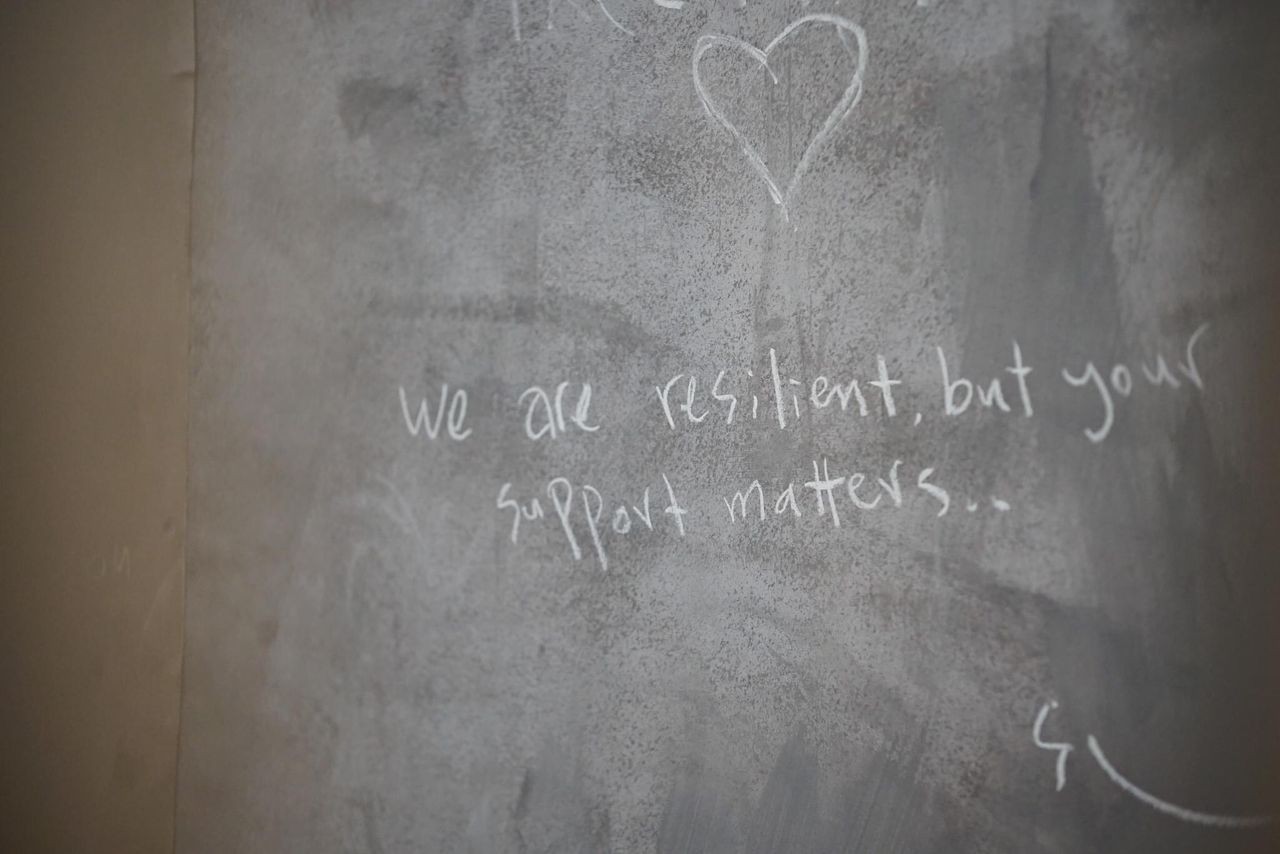 we are resilient, but your
support matters..